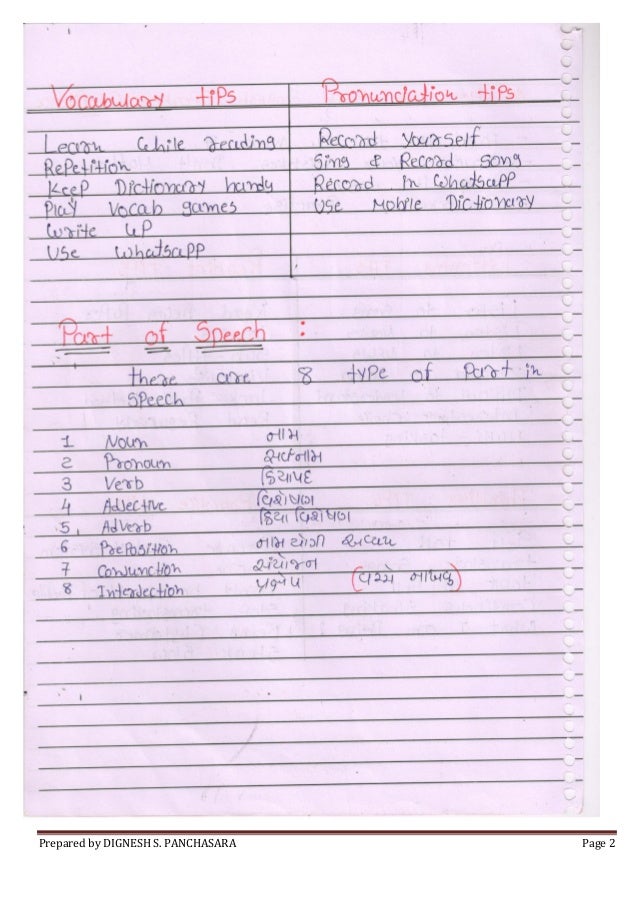 Vocabulary tips Pronunciation tips
Learn while reading Record yourself
Repetition Sing & Record song
Keep Dictionary handy Record in Whatsapp
Play vocab games Use Mobile Dictionary
Write up
Use Whatsapp
Part of Speech :
there are 8 type of Part in
Speech
1 Noun નામ
2 Pronoun સર્વનામ
3 Verb ક્રિયાપદ
4 Adjective વિશેષણ
5, Adverb ક્રિયા વિશેષણ
6 Preposition નામયોગી અવ્યય
7 Conjunction સંયોજન
8 Interjection (વચ્ચે
Prepared by DIGNESH S. PANCHASARA Page 2